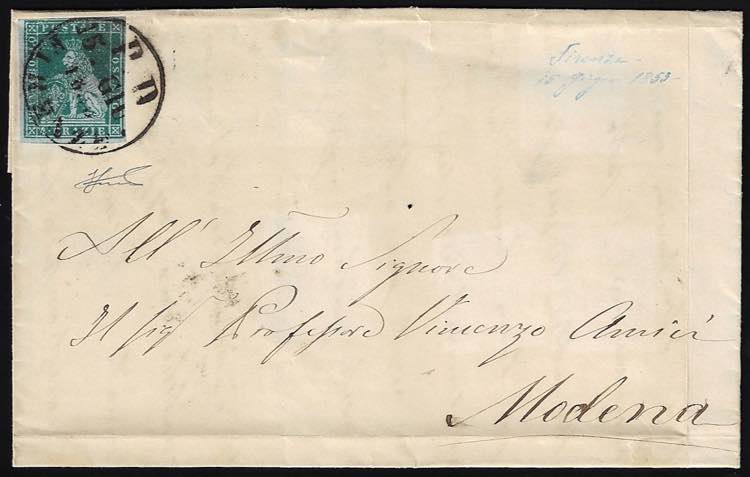 FRANCO BOLLO
POSTALE
TOSCANO
4 CRAZIE
Firenze
15 Giugno 1853
All' Illmo Signore
Il Sigr Professore Vincenzo Amici
Modena